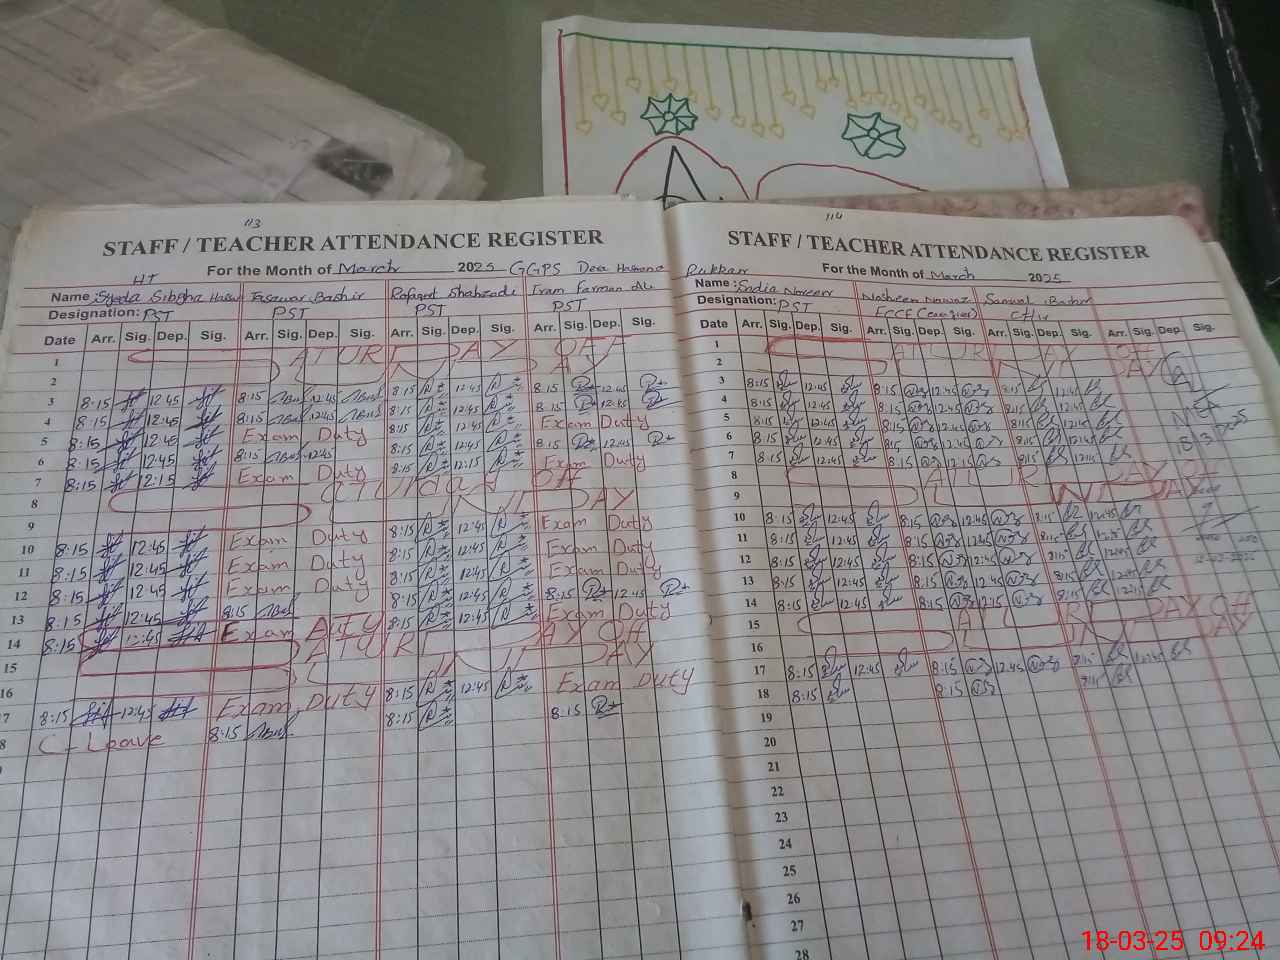 113
STAFF / TEACHER ATTENDANCE REGISTER
For the Month of March 2025 GGPS Dea
HT
Name: Syeda Sibgha Tasawar Bashir Rafaqat Shahzadi Iram Farman Ali
Designation: PST PST PST PST
Date Arr. Sig. Dep. Sig. Arr. Sig. Dep. Sig. Arr. Sig. Dep. Sig. Arr. Sig. Dep. Sig.
1 SATURDAY OFF
2
3 8:15 12:45 8:15 12:45 8:15 12:45 8:15 12:45
4 8:15 12:45 8:15 12:45 8:15 12:45 8:15 12:45
5 8:15 12:45 Exam Duty 8:15 12:45 Exam Duty
6 8:15 12:45 8:15 12:45 8:15 12:45 8:15 12:45
7 8:15 12:15 Exam Duty 8:15 12:15 Exam Duty
8 OFF
9 SUNDAY
10 8:15 12:45 Exam Duty 8:15 12:45 Exam Duty
11 8:15 12:45 Exam Duty 8:15 12:45 Exam Duty
12 8:15 12:45 Exam Duty 8:15 12:45 Exam Duty
13 8:15 12:45 8:15 8:15 12:45 8:15 12:45
14 8:15 Exam Duty 8:15 12:45 Exam Duty
15 SATURDAY OFF
16 SUNDAY
17 8:15 12:45 Exam Duty 8:15 12:45 Exam Duty
8 C-Leave 8:15 8:15 8:15
114
STAFF / TEACHER ATTENDANCE REGISTER
For the Month of March 2025
Name: Sadia Noreen Nosheen Nawaz Samuel Bashir
Designation: PST ECCE (Caregiver)
Date Arr. Sig. Dep. Sig. Arr. Sig. Dep. Sig. Arr. Sig. Dep. Sig. Arr. Sig. Dep. Sig.
1 SATURDAY OFF
2 SUNDAY
3 8:15 12:45 8:15 12:45 8:15 12:45
4 8:15 12:45 8:15 12:45 8:15 12:45
5 8:15 12:45 8:15 12:45 8:15 12:45
6 8:15 12:45 8:15 12:45 8:15 12:45
7 8:15 12:15 8:15 12:15 8:15 12:15
8 SATURDAY OFF
9 SUNDAY
10 8:15 12:45 8:15 12:45 8:15 12:45
11 8:15 12:45 8:15 12:45 8:15 12:45
12 8:15 12:45 8:15 12:45 8:15 12:45
13 8:15 12:45 8:15 12:45 8:15 12:45
14 8:15 12:45 8:15 12:15 8:15 12:15
15 SATURDAY OFF
16 SUNDAY
17 8:15 12:45 8:15 12:45 8:15 12:45
18 8:15 8:15 8:15
19
20
21
22
23
24
25
26
27
28
18-03-25 09:24